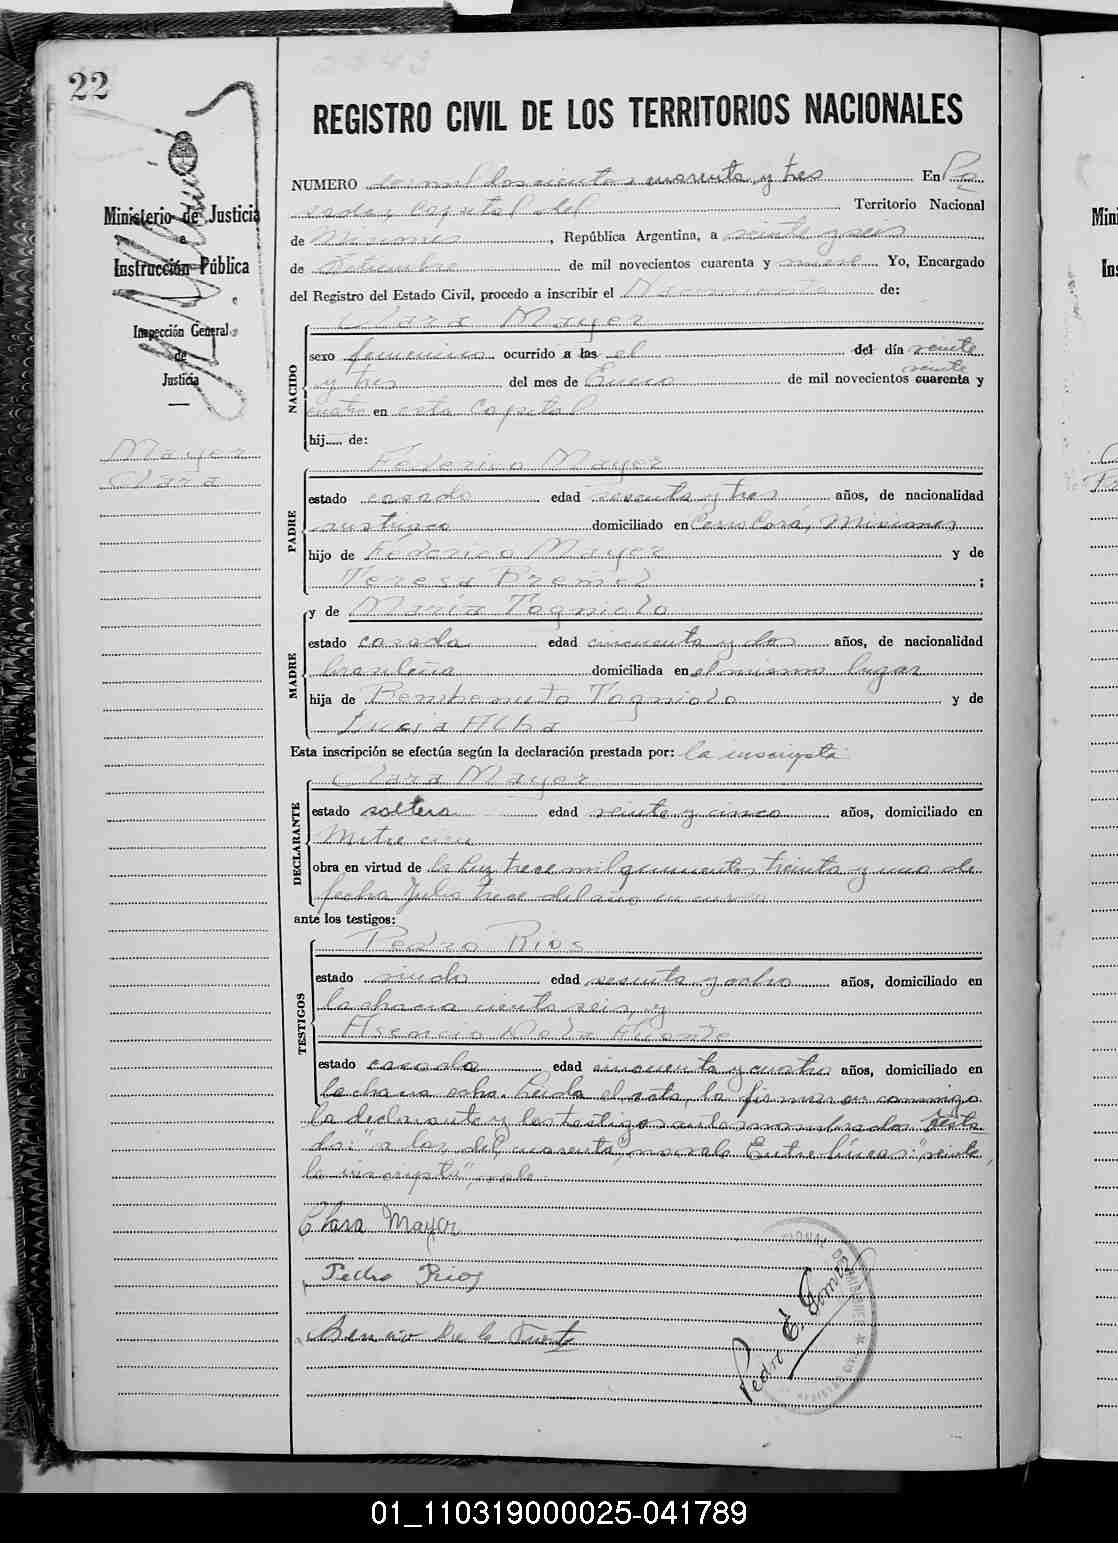 22
2243
REGISTRO CIVIL DE LOS TERRITORIOS NACIONALES
Ministerio de Justicia
e
Instrucción Pública
Inspección General
de
Justicia
Mayer
Clara
NUMERO dos mil doscientos cuarenta y tres En Po
sadas, Capital del Territorio Nacional
de Misiones, República Argentina, a veinte y seis
de Setiembre de mil novecientos cuarenta y nueve Yo, Encargado
del Registro del Estado Civil, procedo a inscribir el Nacimiento de:
NACIDO
Clara Mayer
sexo femenino ocurrido a las el del día veinte
y tres del mes de Enero de mil novecientos cuarenta veinte y
cuatro en esta Capital
hij..... de:
PADRE
Federico Mayer
estado casado edad sesenta y tres años, de nacionalidad
austriaco domiciliado en Cerro Corá, Misiones
hijo de Federico Mayer y de
Teresa ;
MADRE
y de María Togniolo
estado casada edad cincuenta y dos años, de nacionalidad
brasileña domiciliada en el mismo lugar
hija de Benbenuto Togniolo y de
Lucia Alba
Esta inscripción se efectúa según la declaración prestada por: la inscripta
DECLARANTE
Clara Mayer
estado soltera edad veinte y cinco años, domiciliado en
Mitre cien
obra en virtud de la Ley trece mil quinientos treinta y uno de
fecha Julio trece del año en curso
ante los testigos:
TESTIGOS
Pedro Rios
estado viudo edad sesenta y ocho años, domiciliado en
la chacra ciento seis, y
Asencio De la Fuente
estado casado edad cincuenta y cuatro años, domiciliado en
la chacra ocho. Leida el acta, la firmaron conmigo
la declarante y los testigos antes nombrados. Testa
do: "a las, del, cuarenta", no vale. Entre líneas: "veinte,
la inscripta", vale
Clara Mayer
Pedro Rios
Asencio De la Fuente
Pedro E. Gomez
01_110319000025-041789